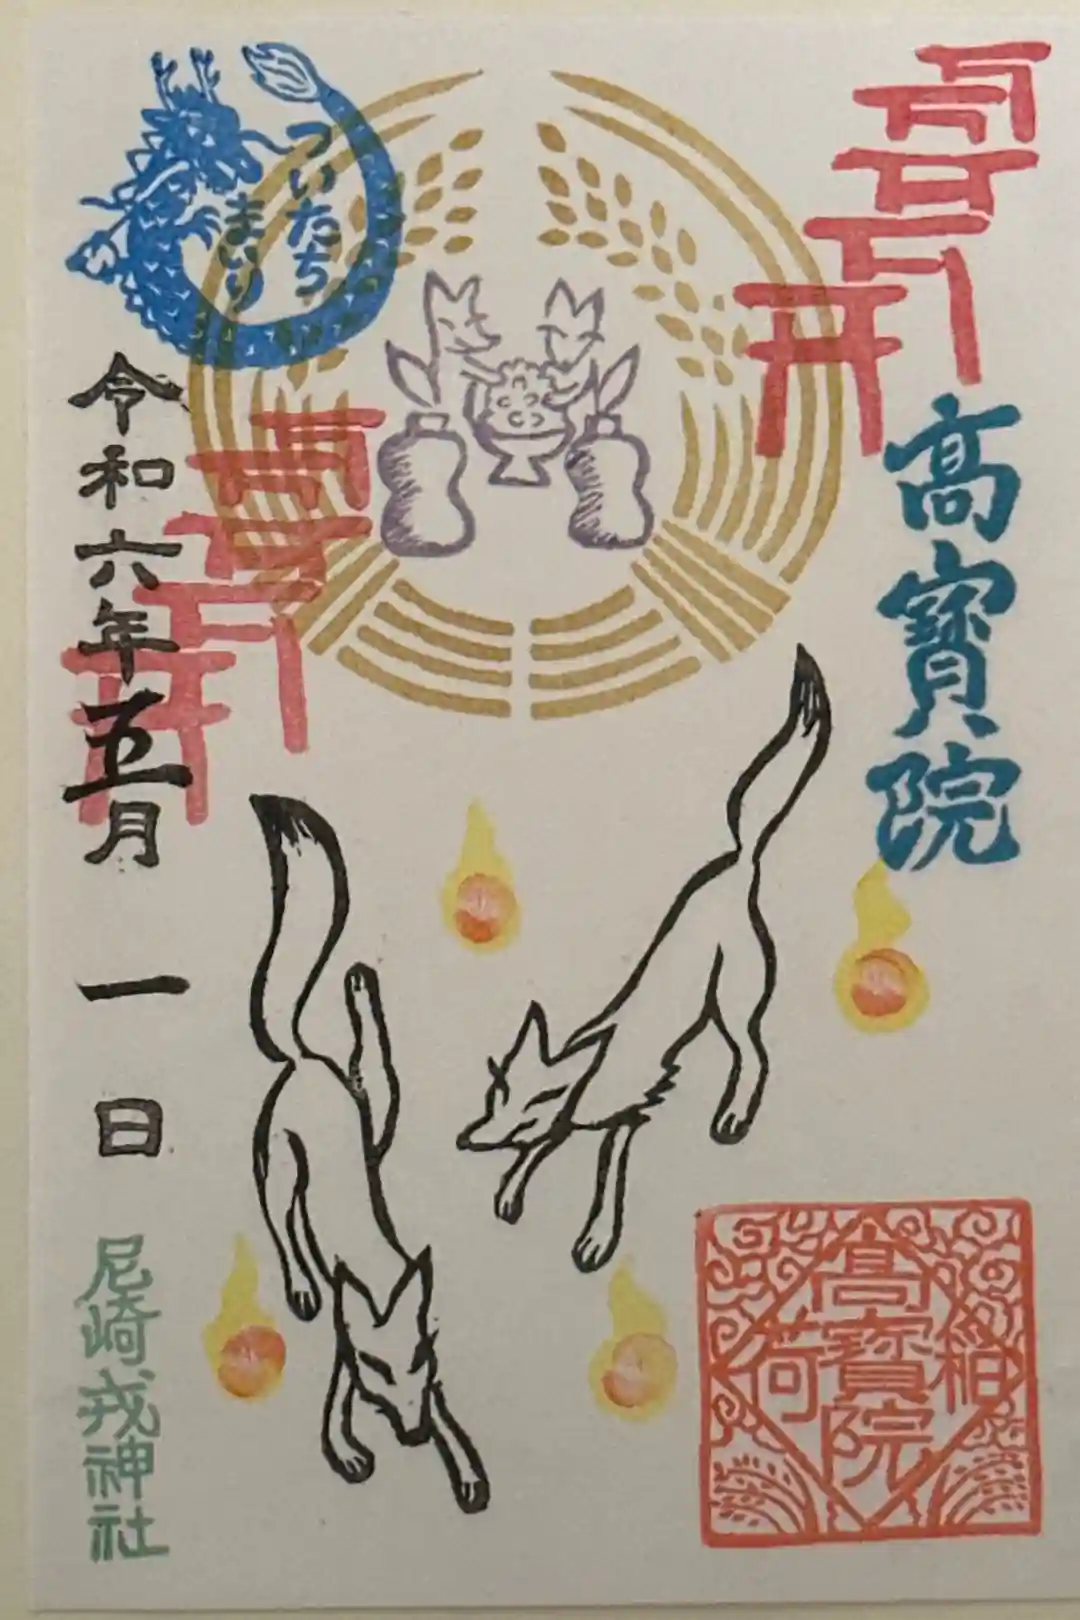 高寳院
ついたち
まいり
令和六年五月一日
尼崎戎神社
稲荷
高寳院